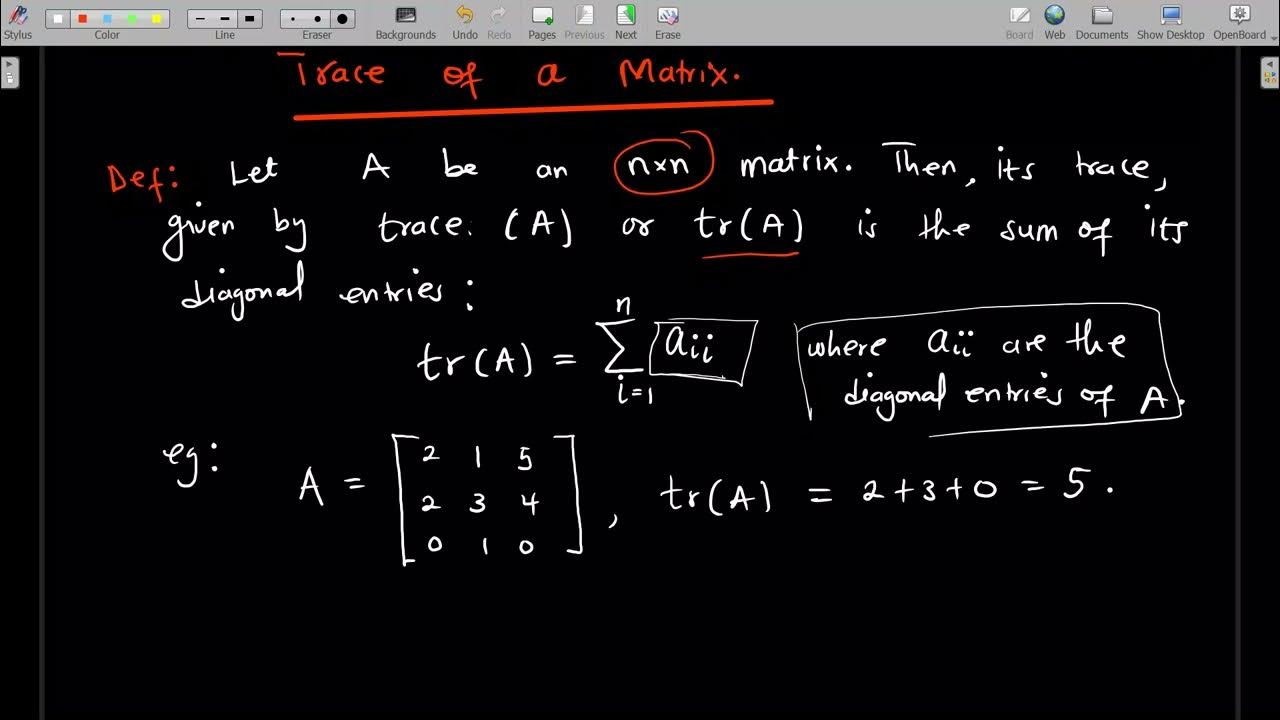 Stylus Color Line Eraser Backgrounds Undo Redo Pages Previous Next Erase Board Web Documents Show Desktop OpenBoard
Trace of a Matrix.
Def: Let A be an n×n matrix. Then, its trace,
given by trace. (A) or tr(A) is the sum of its
diagonal entries:
tr(A) = ∑ⁿᵢ₌₁ aᵢᵢ where aᵢᵢ are the
diagonal entries of A.
eg: A = [2 1 5
2 3 4
0 1 0], tr(A) = 2+3+0 = 5.